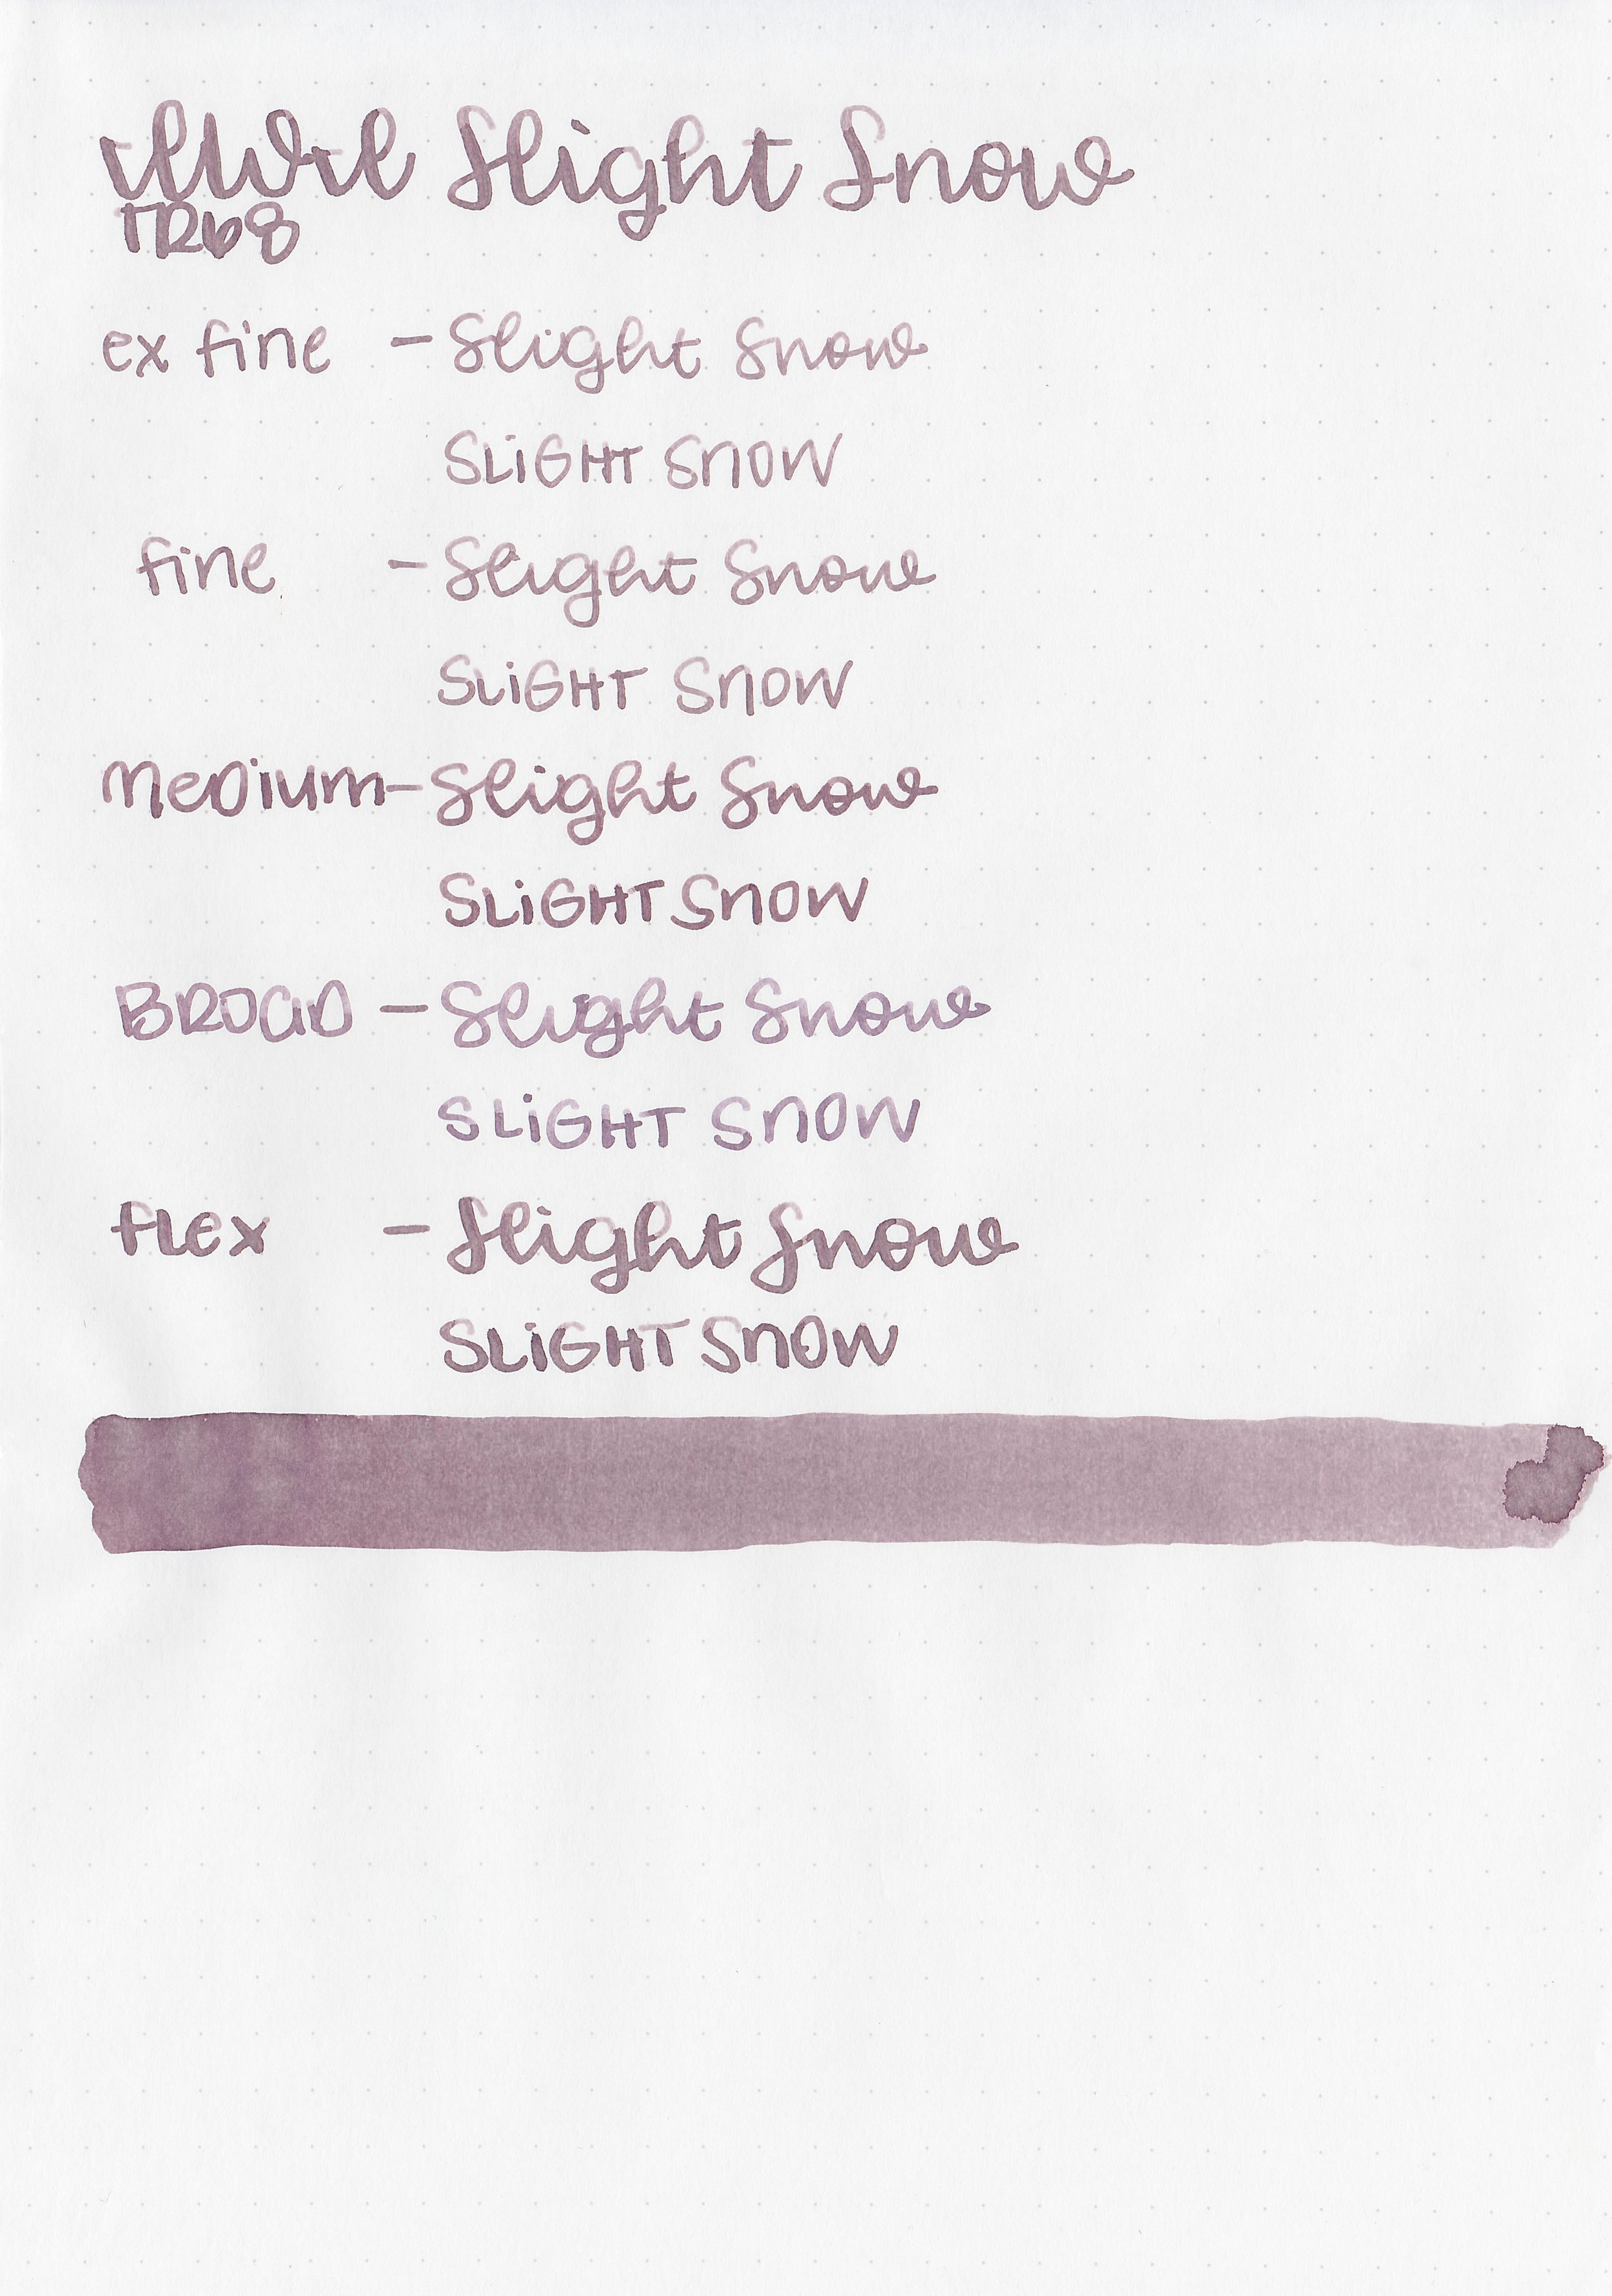 Slight Snow
TR68
ex fine - Slight Snow
SLiGHT SNOW
fine - Slight Snow
SLiGHT SNOW
Medium - Slight Snow
SLiGHT SNOW
BROAD - Slight Snow
SLiGHT SNOW
flex - Slight Snow
SLiGHT SNOW